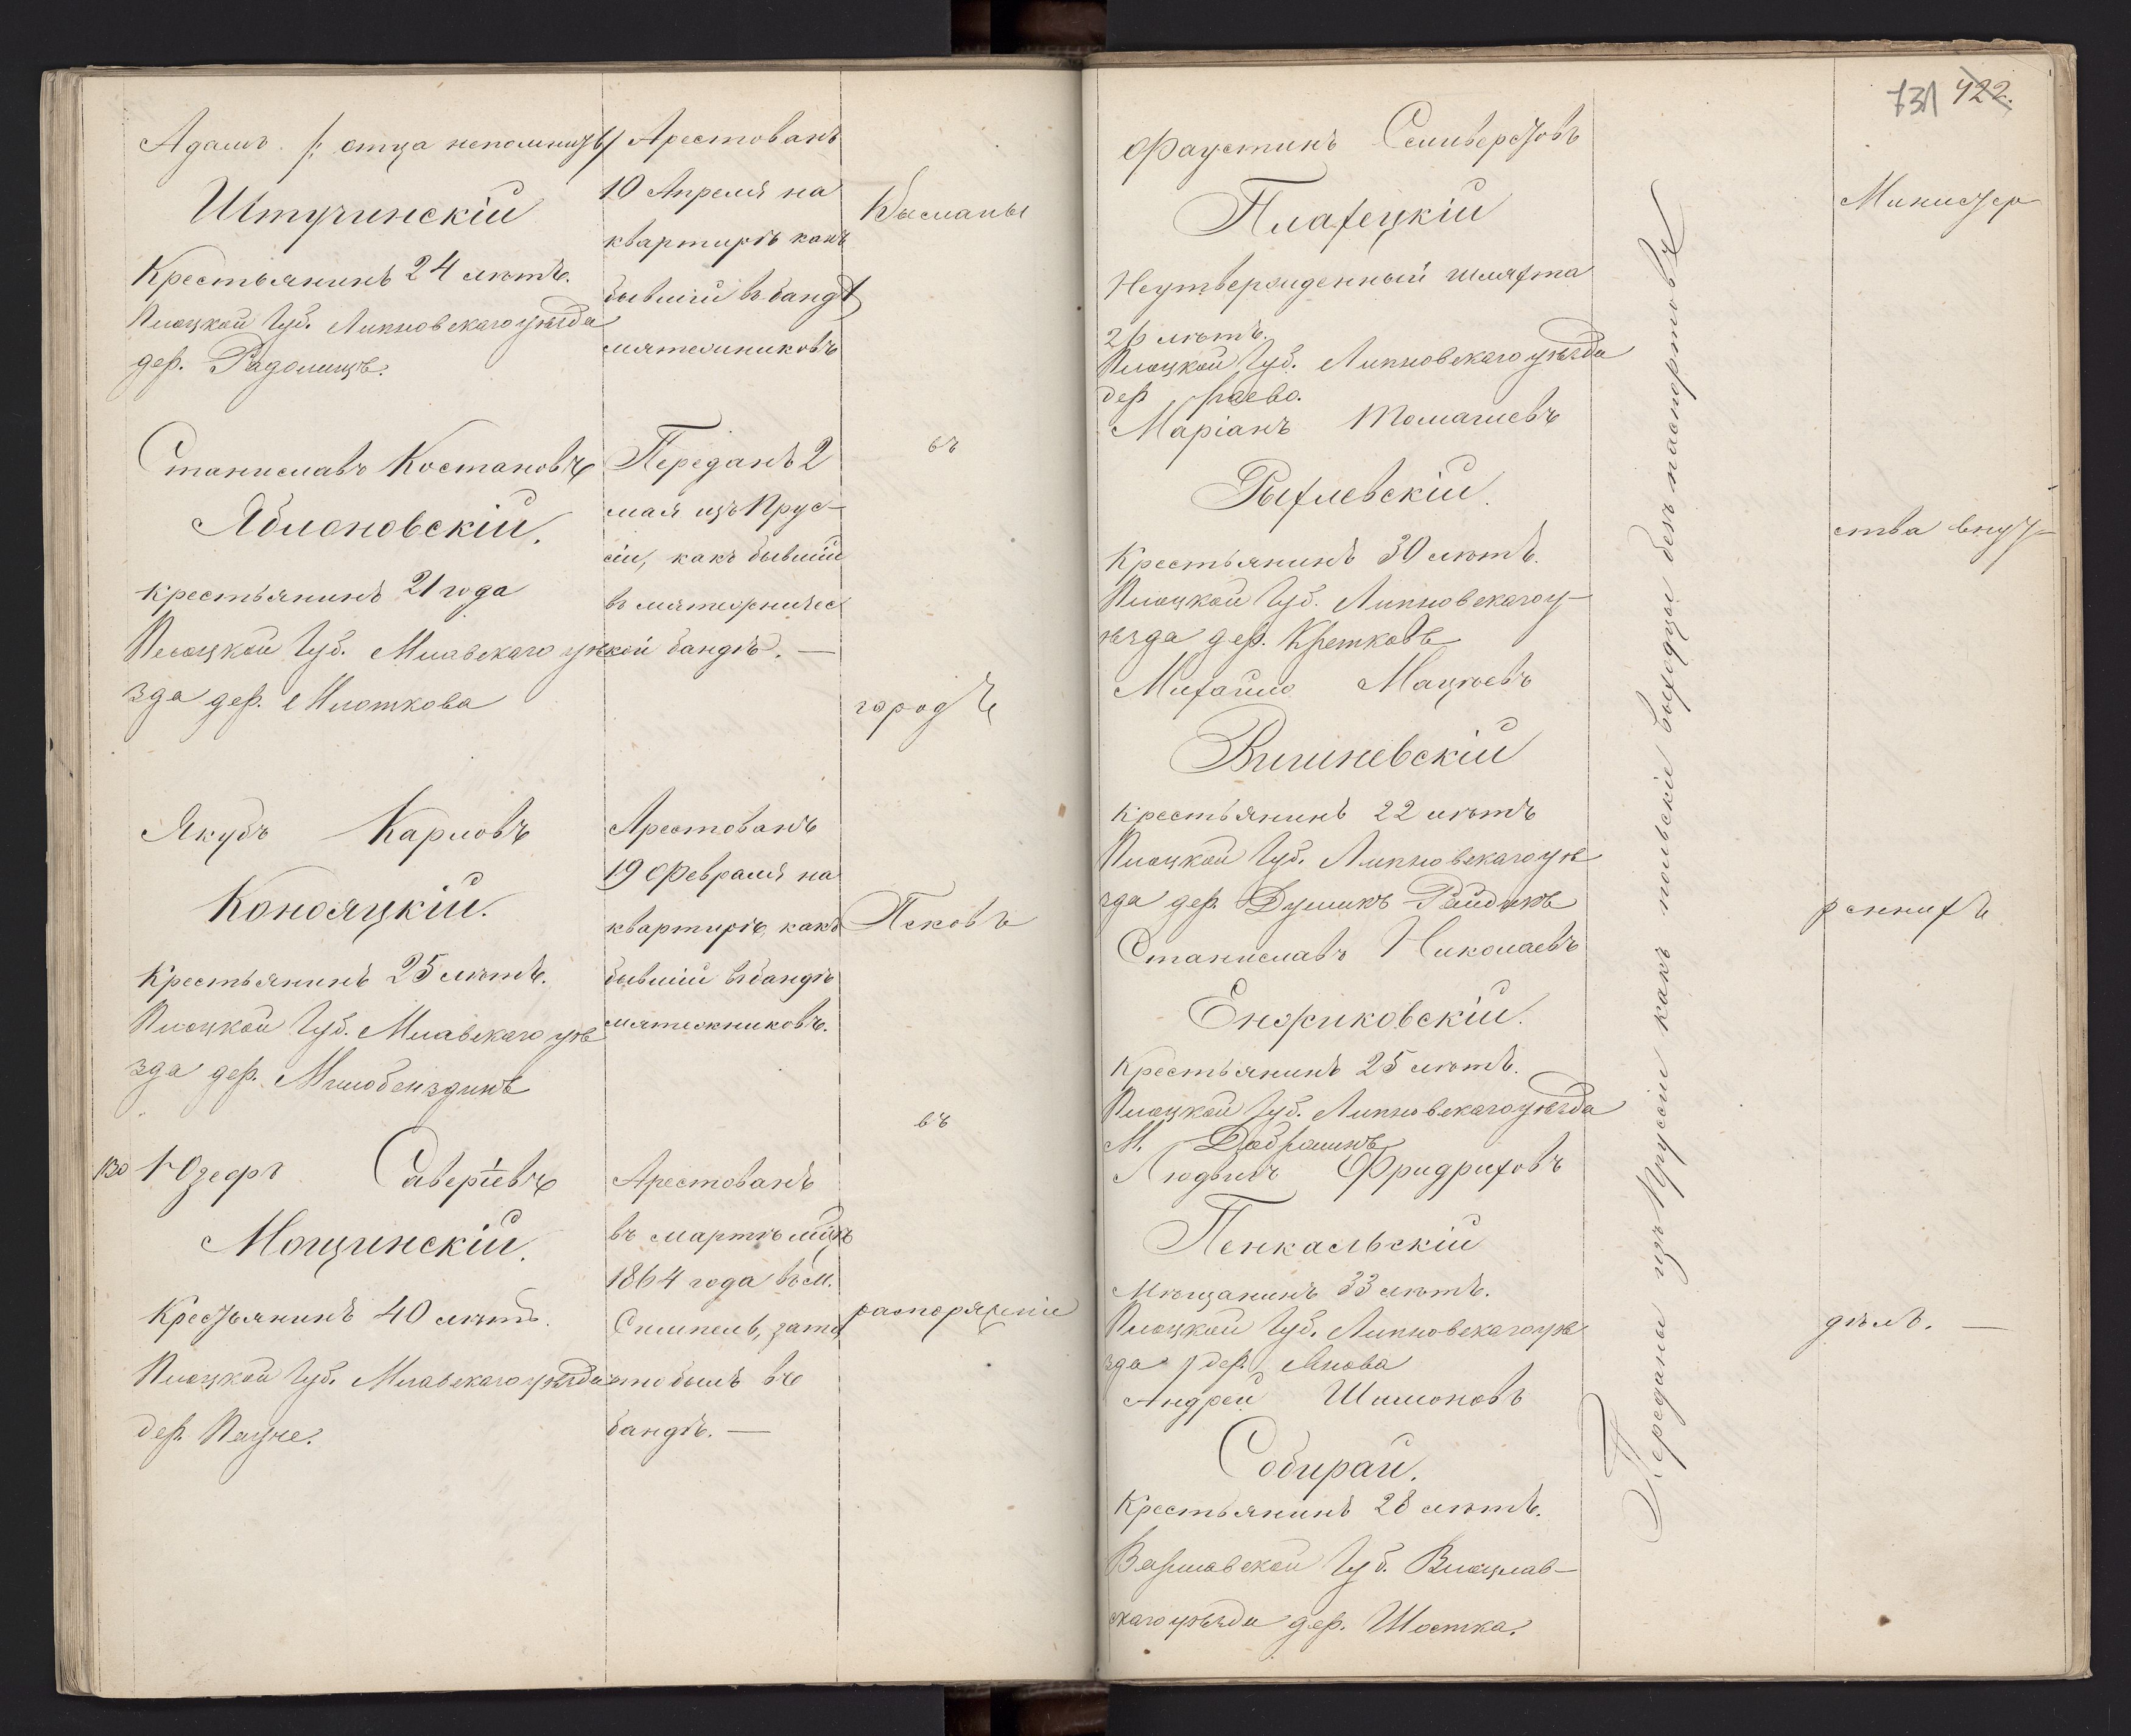 Адамъ /: отца непомнитъ :/
Штучинскій
Крестьянинъ 24 лѣтъ.
Плоцкой Губ. Липновскаго уѣзда
дер. Радоминъ.
Станиславъ Костановъ
Яблоновскій.
крестьянинъ 21 года
Плоцкой Губ. Млавскаго уѣ
зда дер. Млоткова
Якубъ Карловъ
Конояцкій.
Крестьянинъ 25 лѣтъ.
Плоцкой Губ. Млавскаго уѣ
зда дер.
130 Юзефъ Саверіевъ
Мощинскій.
Крестьянинъ 40 лѣтъ.
Плоцкой Губ. Млавскаго уѣзда
дер.
Арестованъ
10 Апреля на
квартирѣ какъ
бывшій въ бандѣ
мятежниковъ
Переданъ 2
мая изъ Прус-
сіи, какъ бывшій
въ мятежничес
кой бандѣ. —
Арестованъ
19 Февраля на
квартирѣ, какъ
бывшій въ бандѣ
мятежниковъ.
Арестованъ
въ мартѣ мцѣ
1864 года въ м.
за то
что былъ въ
бандѣ. —
Высланы
въ
городъ
Псковъ
въ
распоряженіе
731 422.
Фаустинъ Селиверстовъ
Плахецкій
Неутвержденный шляхта
26 лѣтъ.
Плоцкой Губ. Липновскаго уѣзда
дер.
Маріанъ Томашевъ
Рыхлевскій.
Крестьянинъ 30 лѣтъ.
Плоцкой Губ. Липновскаго у-
ѣзда дер. Кретковъ
Михаило Мацѣевъ
Вишневскій
крестьянинъ 22 лѣтъ
Плоцкой Губ. Липновскаго уѣ
зда дер.
Станиславъ Николаевъ
Енджиковскій.
Крестьянинъ 25 лѣтъ.
Плоцкой Губ. Липновскаго уѣзда
М.
Людвигъ Фридриховъ
Пенкальскій
Мѣщанинъ 33 лѣтъ.
Плоцкой Губ. Липновскаго уѣ
зда дер.
Андрей Шимоновъ
Собирай.
Крестьянинъ 28 лѣтъ.
Варшавской Губ. Влоцлав-
скаго уѣзда дер. Шостка.
Переданы изъ Пруссіи какъ польскіе выходцы безъ паспортовъ
Министер
ства внут-
реннихъ
дѣлъ. —